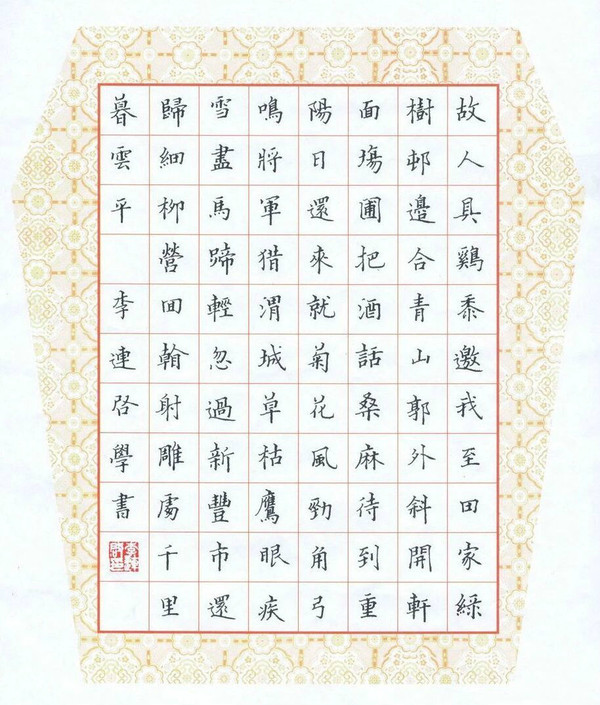 故人具鷄黍邀我至田家綠
樹邨邊合青山郭外斜開軒
面塲圃把酒話桑麻待到重
陽日還來就菊花風勁角弓
鳴將軍猎渭城草枯鷹眼疾
雪盡馬蹄輕忽過新豐市還
歸細柳營囬翰射雕處千里
暮雲平 李連启學書